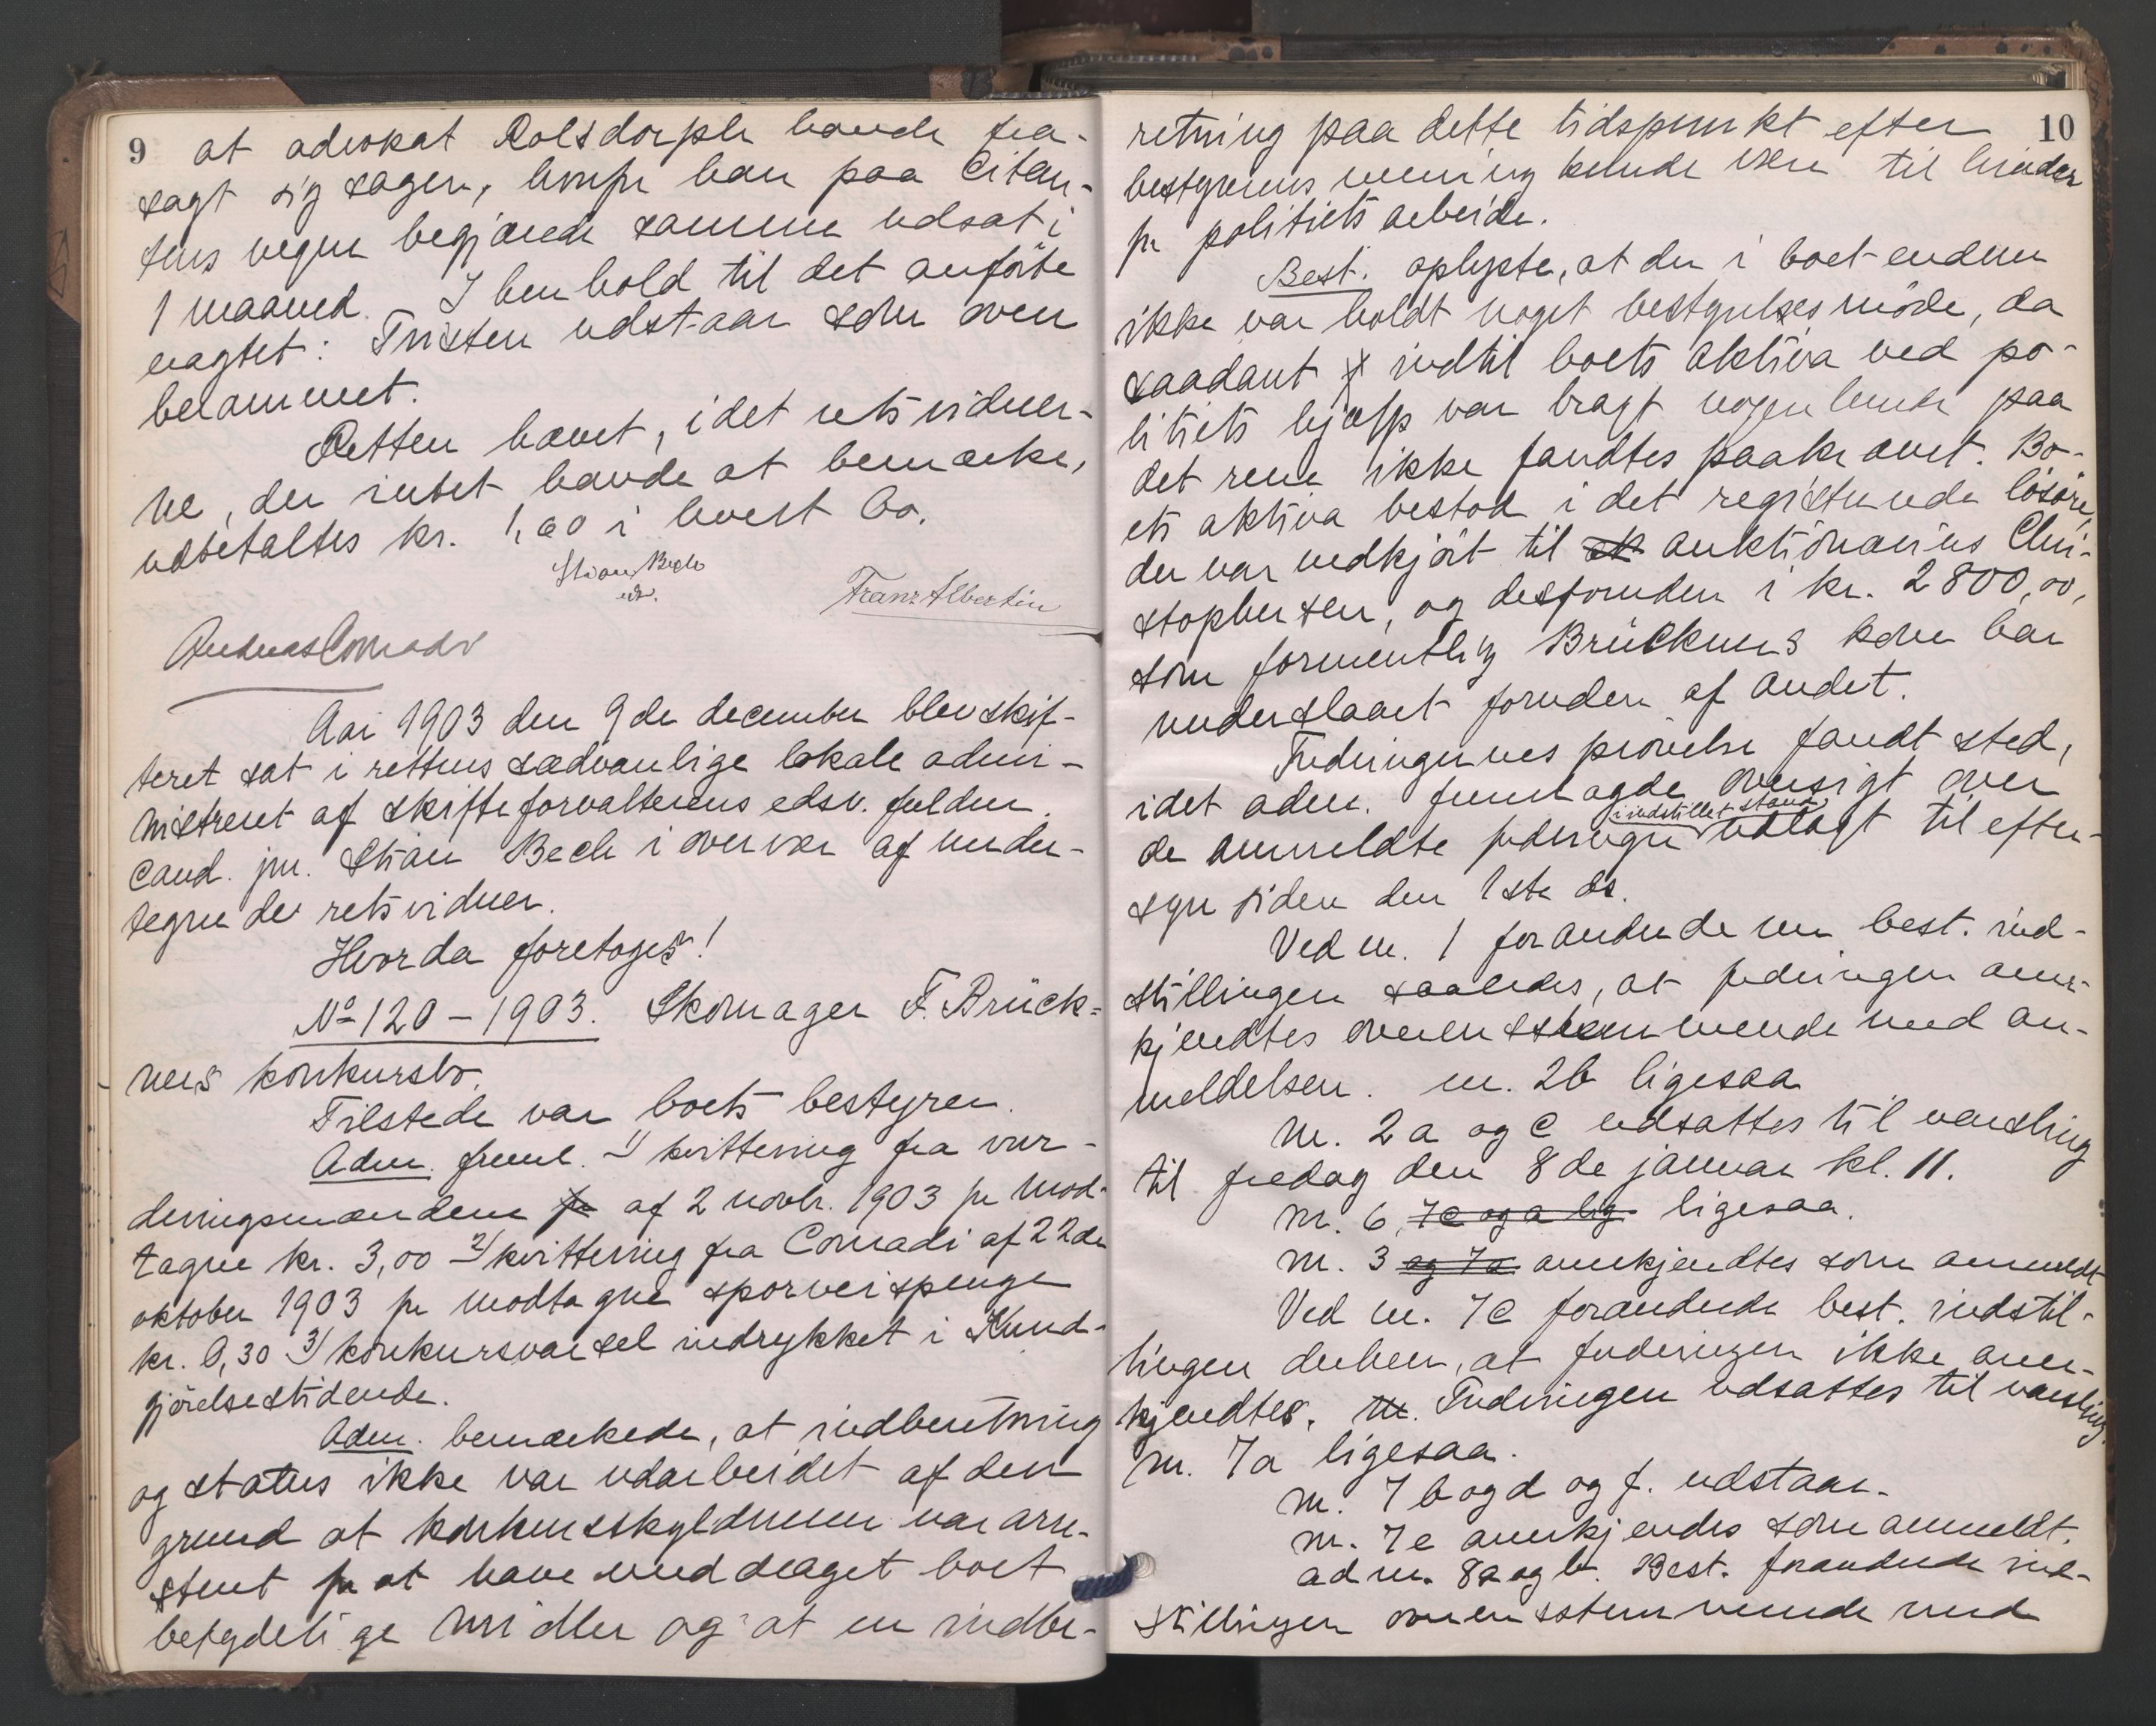 9
at advokat Rolsdorph havde fra-
sagt sig sagen, hvorfor han paa Citan-
tens vegne begjærede samme udsat i
1 maaned. I henhold til det anførte
vagtet: Tvisten udstaar som oven
berammet.
Retten hævet, idet retsvidner-
ne, der intet havde at bemærke,
udbetaltes kr. 1,60 i hvert bo.
Stian Bech
edsv.
Franz Albertin
Andreas Conradi
Aar 1903 den 9de december blev skif-
teret sat i rettens sædvanlige lokale admi-
nistreret af skifteforvalterens edsv. fuldm.
cand. jur. Stian Bech i overvær af under-
tegnede retsvidner.
Hvorda foretoges!
No 120 – 1903. Skomager F. Brück-
ners konkursbo.
Tilstede var boets bestyrer.
Adm. freml. 1) kvittering fra vur-
deringsmændene for af 2 novbr. 1903 for mod-
tagne kr. 3,00 2) kvittering fra Conradi af 22de
oktober 1903 for modtagne sporveispenge
kr. 0,30 3) konkursvarsel indrykket i Kund-
gjørelsestidende.
Adm. bemærkede, at indberetning
og status ikke var udarbeidet af den
grund at konkursskyldneren var arre-
steret for at have unddraget boet
betydelige midler og at en indbe-
10
retning paa dette tidspunkt efter
bestyrerens mening kunde være til hinder
for politiets arbeide.
Best. oplyste, at der i boet endnu
ikke var holdt noget bestyrelsesmøde, da
saadant indtil boets aktiva ved po-
litiets hjælp var bragt nogenlunde paa
det rene ikke fandtes paakrævet. Bo-
ets aktiva bestod i det registrerede løsøre,
der var nedkjørt til auktionarius Chri-
stophersen, og desforuden i kr. 2800,00,
som formentlig Brückners kone har
underslaaet foruden af andet.
Fordringernes prøvelse fandt sted,
idet adm. fremlagde oversigt over
i indstillet stand,
de anmeldte fordringer udlagt til efter-
syn siden den 1ste ds.
Ved nr. 1 forandrede nu best. ind-
stillingen saaledes, at fordringen aner-
kjendtes overensstemmende med an-
meldelsen. nr. 2b ligesaa
Nr. 2a og c udsattes til varsling
til fredag den 8de januar kl. 11.
Nr. 6, 7c og a lig. ligesaa.
Nr. 3 og 7a anerkjendtes som anmeldt
Ved nr. 7c forandrede best. indstil-
lingen derhen, at fordringen ikke aner-
kjendtes. Nr. Fordringen udsattes til varsling.
Nr. 7a ligesaa.
Nr. 7 b og d og f. udstaar.
Nr. 7e anerkjendes som anmeldt.
ad nr. 8a og b. Best. forandrede ind-
stillingen overensstemmende med